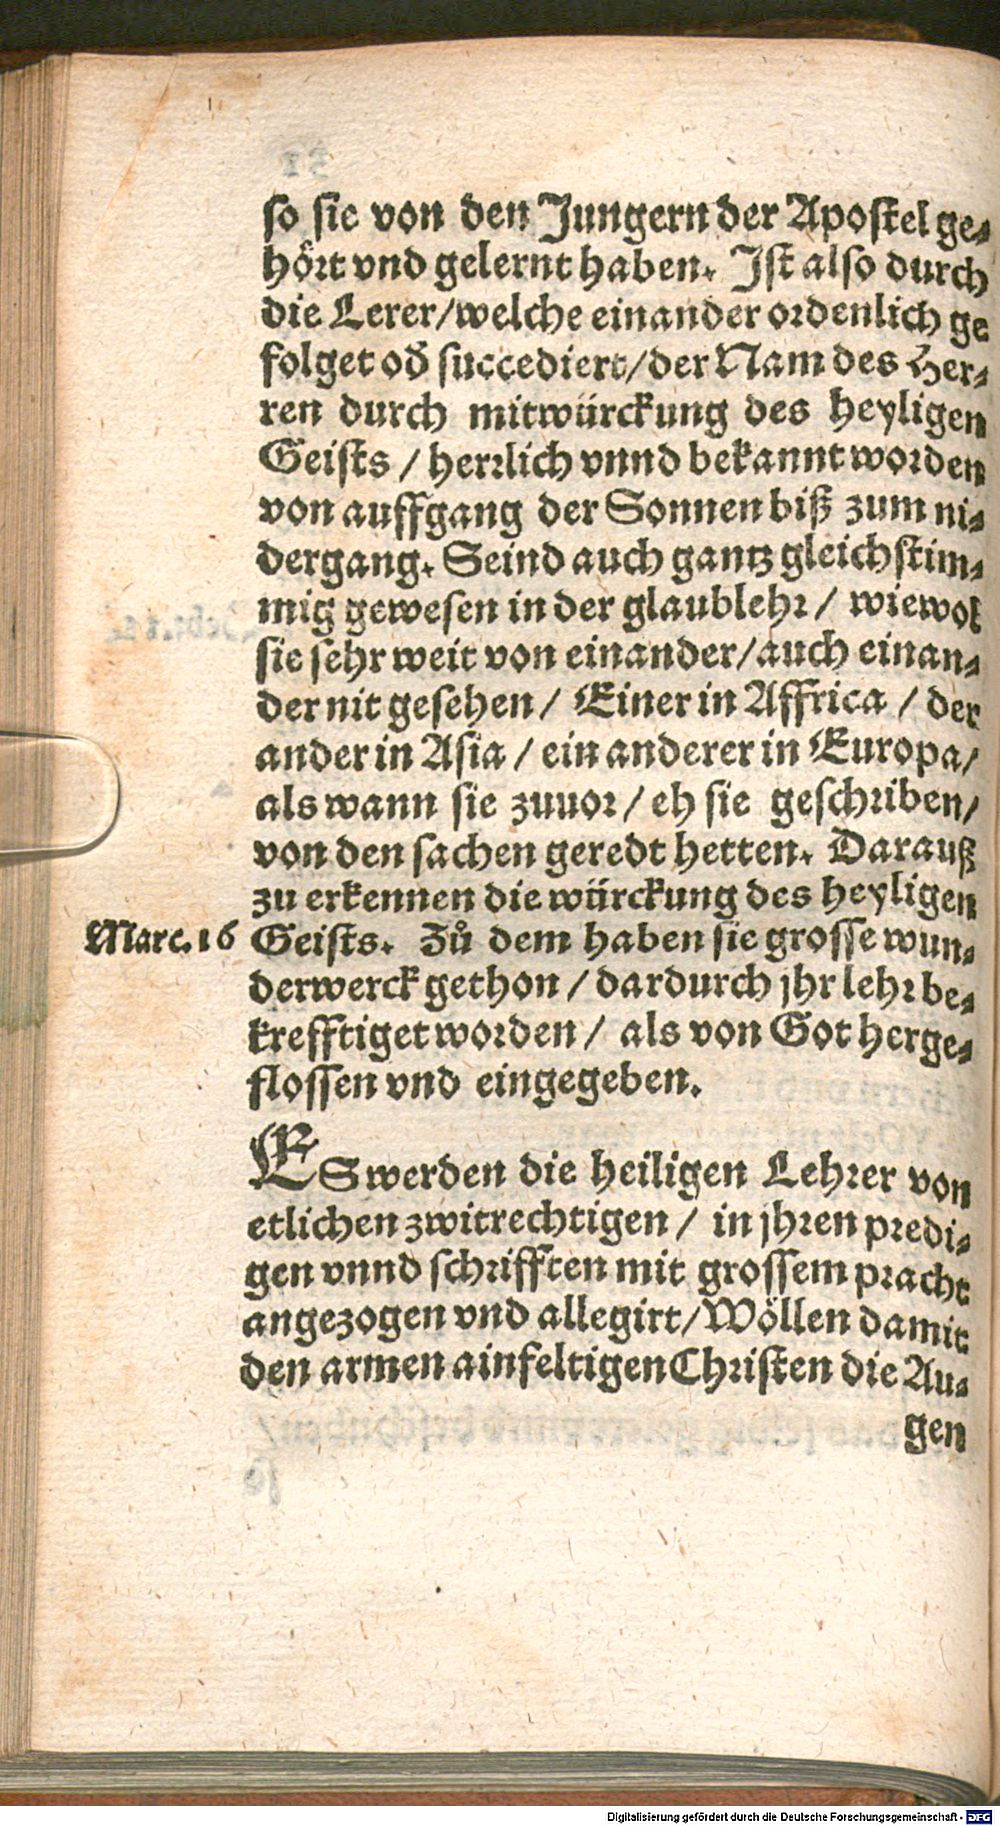 so sie von den Jungern der Apostel ge⸗
hoͤrt vnd gelernt haben. Ist also durch
die Lerer/welche einander ordenlich ge
folget od̄ succediert/der Nam des Her⸗
ren durch mitwürckung des heyligen
Geists / herrlich vnnd bekannt worden
von auffgang der Sonnen biß zum ni⸗
dergang. Seind auch gantz gleichstim⸗
mig gewesen in der glaublehr / wiewol
sie sehr weit von einander/auch einan⸗
der nit gesehen / Einer in Affrica / der
ander in Asia / ein anderer in Europa/
als wann sie zuuor / eh sie geschriben/
von den sachen geredt hetten. Darauß
zu erkennen die würckung des heyligen
Marc. 16 Geists. Zů dem haben sie grosse wun⸗
derwerck gethon / dardurch jhr lehr be⸗
krefftiget worden / als von Got herge⸗
flossen vnd eingegeben.
ES werden die heiligen Lehrer von
etlichen zwitrechtigen / in jhren predi⸗
gen vnnd schrifften mit grossem pracht
angezogen vnd allegirt/Wöllen damit
den armen ainfeltigen Christen die Au⸗
gen
Digitalisierung gefördert durch die Deutsche Forschungsgemeinschaft - DFG